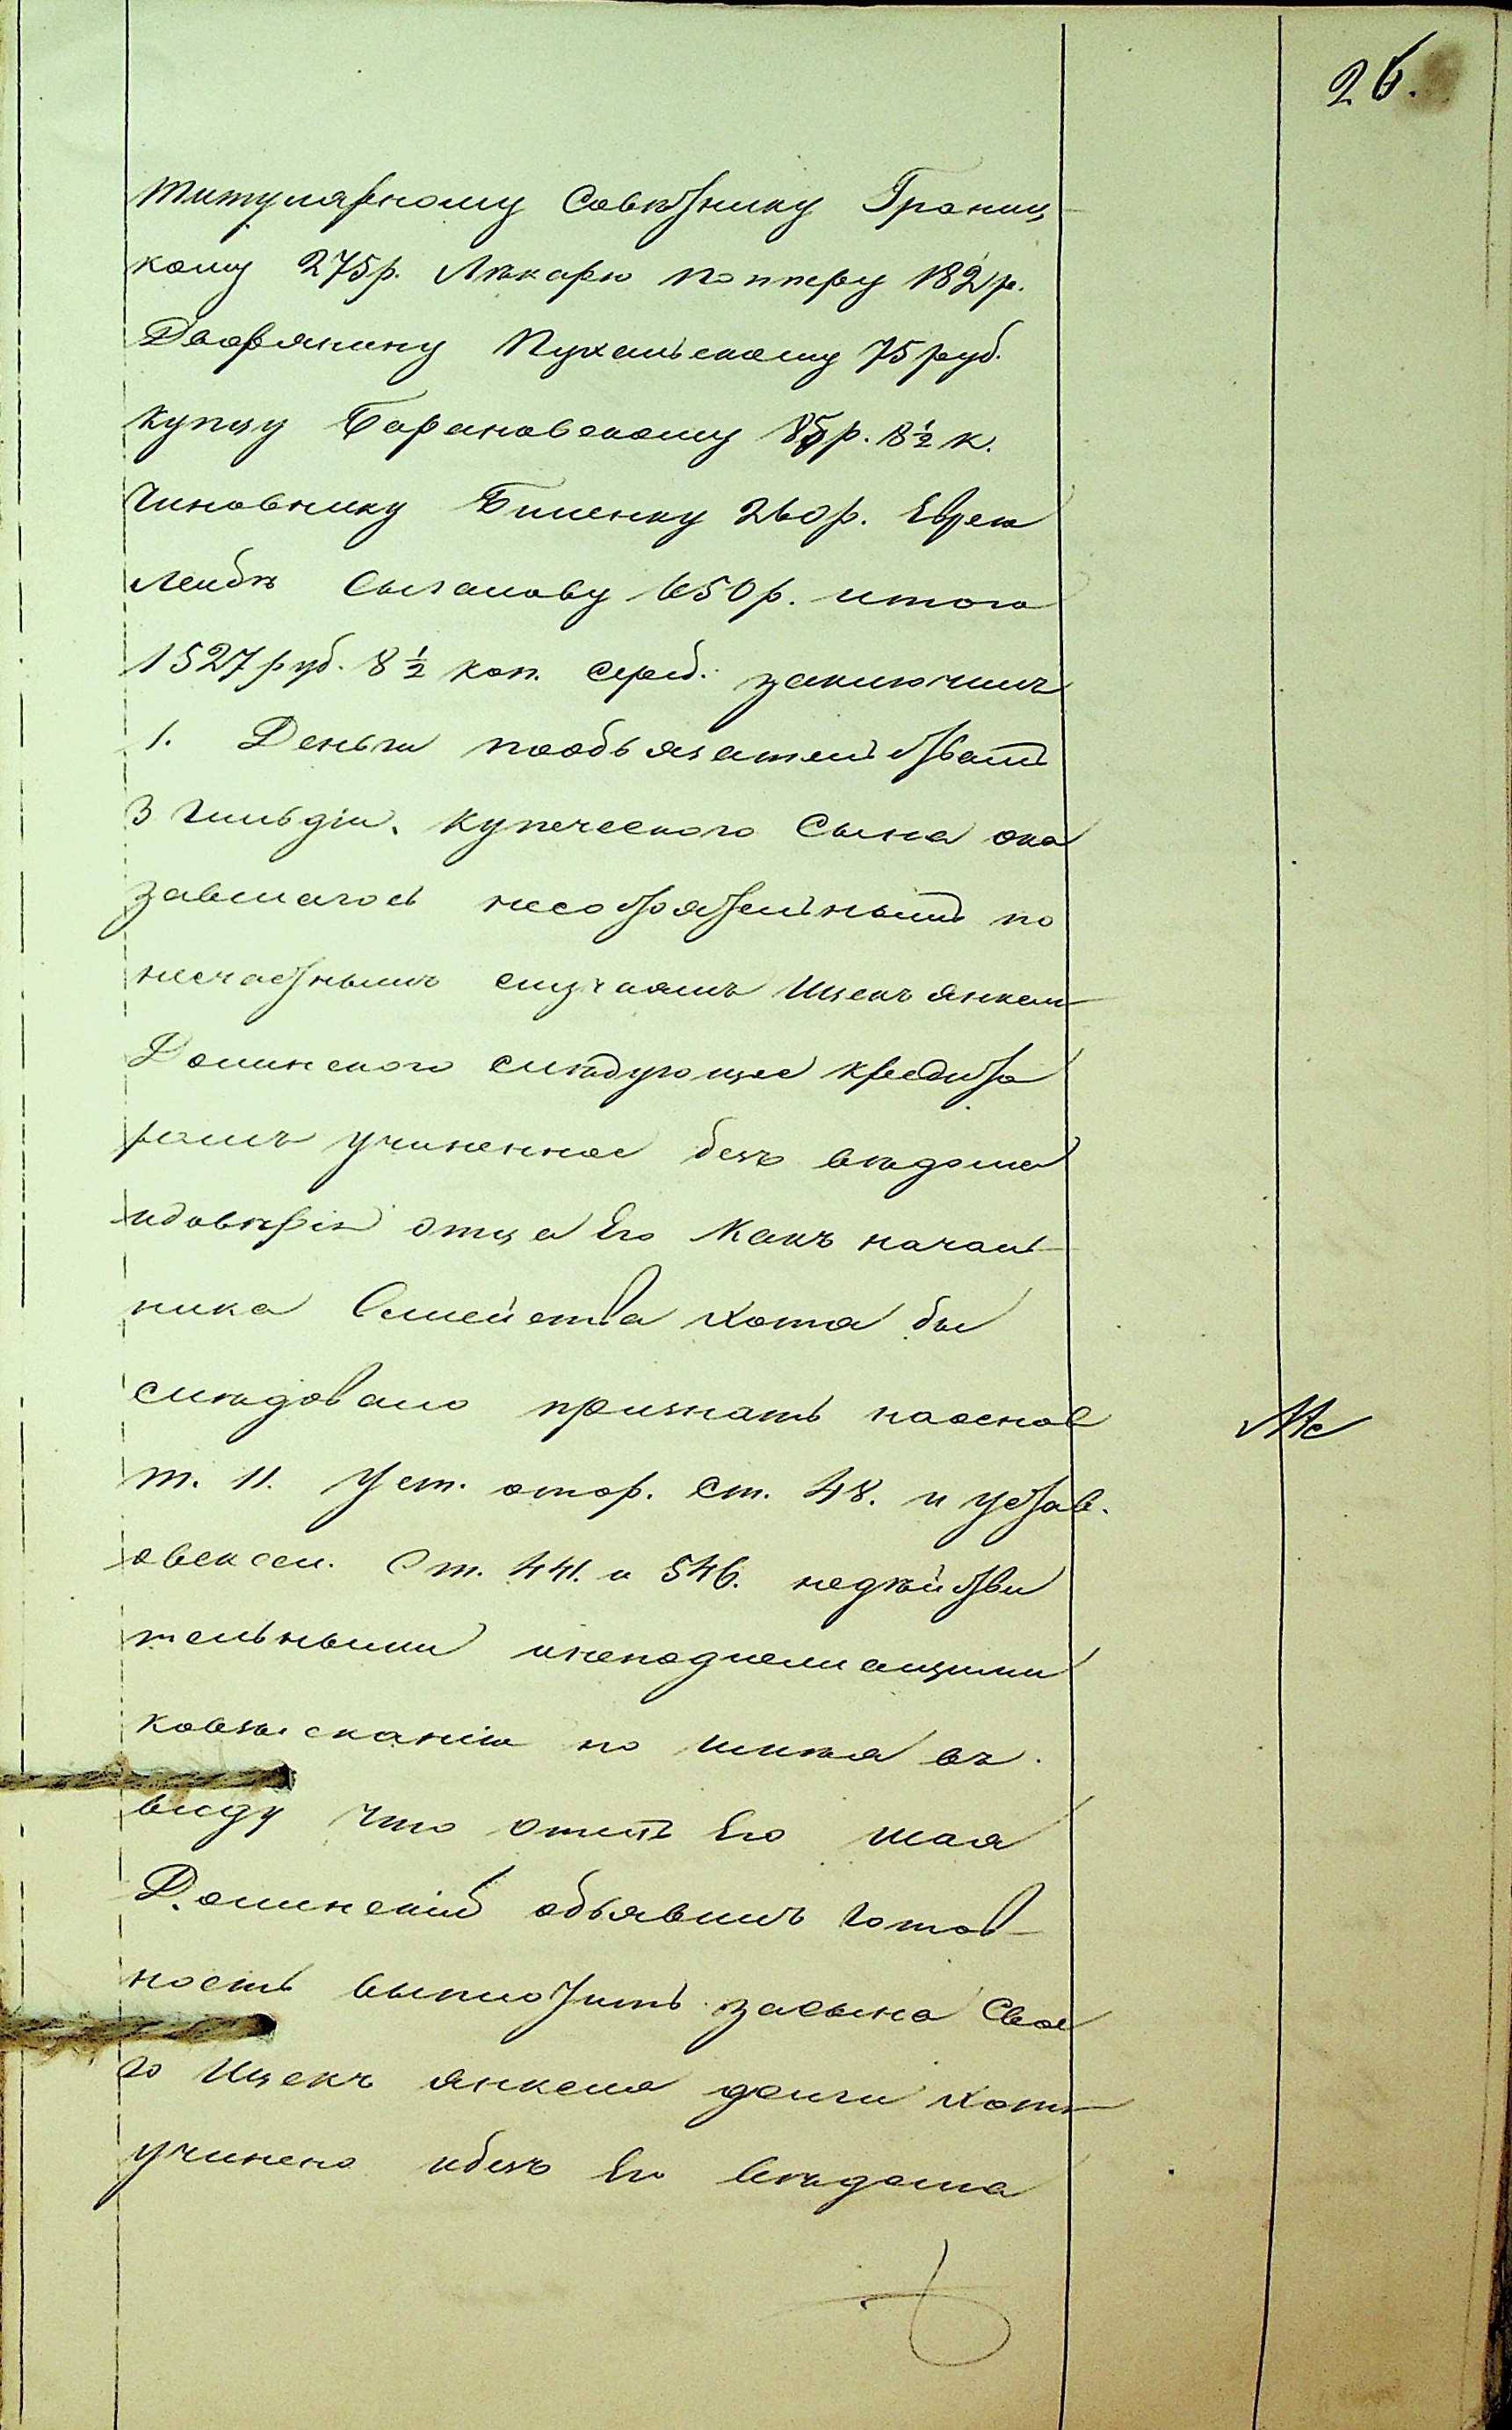 26.
Титулярному Совѣтнику Границ-
кому 275 р. Лѣкарю Попперу 182 р.
Дворянину Пухальскому 75 руб.
купцу Барановскому 85 р. 8½ к.
Чиновнику Биленку 260 р. Еврею
Лейбѣ Сыгалову 650 р. итого
1527 руб. 8½ коп. сереб. заключилъ
1. Деньги пообязательствамъ
3 гильдіи. купеческого Сына ока
завшагось несостоятельнымъ по
несчастнымъ случаямъ Ицекъ Янкеля
Долинского слѣдующіе кредито
рамъ учиненное безъ вѣдома
идовѣрія отца Его Какъ началь-
ника Семейства хотя бы
слѣдовало признать наоснов
т. 11. Уст. о тор. Ст. 48. и устав.
овексел. Ст. 441. и 546. недѣйстви
тельными инеподлежащими
ковзысканію но имѣя въ
виду что отецъ Его Шая
Долинскій объявилъ готов-
ность выплотить засына Свое
го Ицекъ Янкеля долги хотя
учинено ибезъ Его вѣдома